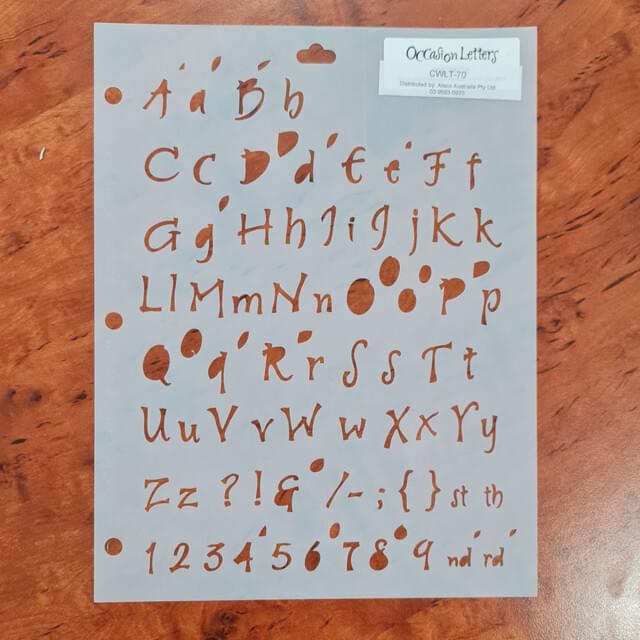 Occasion Letters
CWLT-70
Distributed by: Allsco Australia Pty Ltd
A a B b
C c D d E e F f
G g H h I i J j K k
L l M m N n O o P p
Q q R r S s T t
U u V v W w X x Y y
Z z ? ! & / - ; { } st th
1 2 3 4 5 6 7 8 9 nd rd